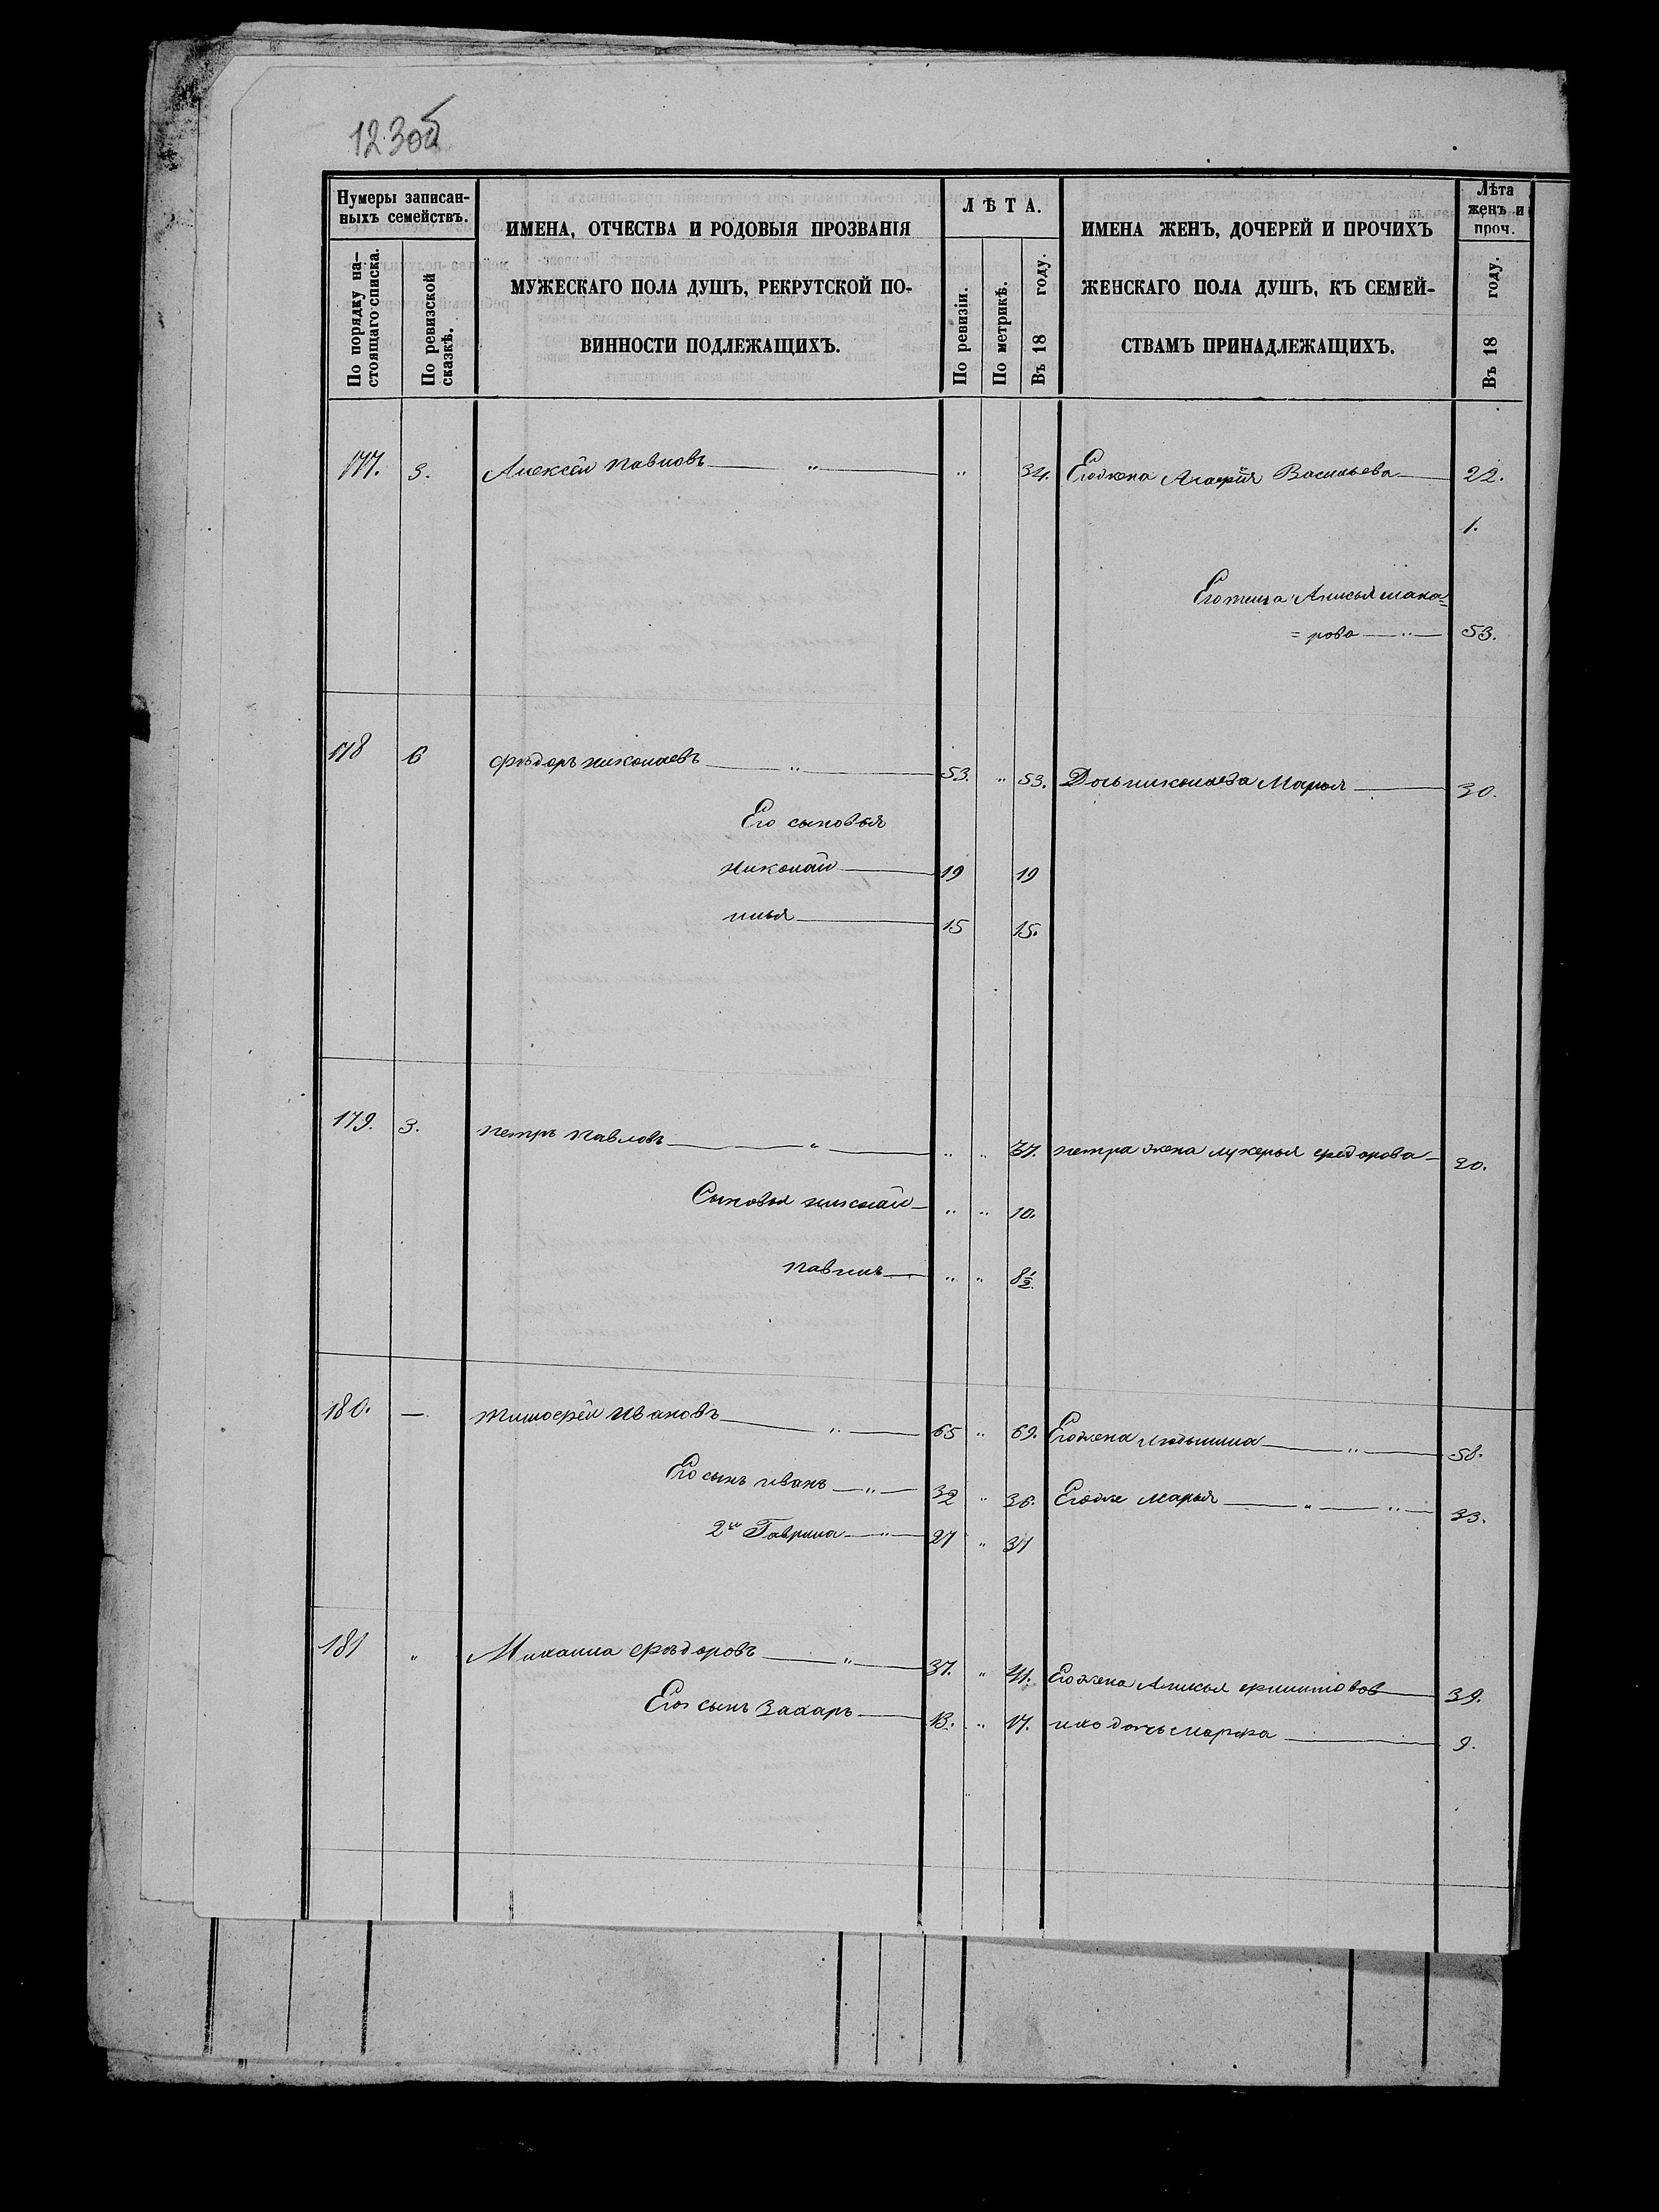 123об
Нумеры записан-
ныхъ семействъ.
По порядку на-
стоящаго списка.
По ревизской
сказкѣ.
ИМЕНА, ОТЧЕСТВА И РОДОВЫЯ ПРОЗВАНІЯ
МУЖЕСКАГО ПОЛА ДУШЪ, РЕКРУТСКОЙ ПО-
ВИННОСТИ ПОДЛЕЖАЩИХЪ.
ЛѢТА.
По ревизіи.
По метрикѣ.
Въ 18 году.
ИМЕНА ЖЕНЪ, ДОЧЕРЕЙ И ПРОЧИХЪ
ЖЕНСКАГО ПОЛА ДУШЪ, КЪ СЕМЕЙ-
СТВАМЪ ПРИНАДЛЕЖАЩИХЪ.
Лѣта
женъ и
проч.
Въ 18 году.
177. 3. Алексѣй Павловъ — „ — „ 34. Его жена Агафія Васильева — 22.
1.
Его теща Анисья Мака=
=рова — „ — 53.
178 6 Ѳедоръ Николаевъ — „ — 53. „ 53. Дочь Николаева Марья — 30.
Его сыновья
Николай — 19 19
Илья — 15 15.
179. 3. Петръ Павловъ — „ — „ „ 37. Петра жена Лукерья Федорова — 30.
Сыновья Николай — „ „ 10.
Павилъ — „ „ 8½.
180. — Тимофей Ивановъ — „ — 65 „ 69. Его жена — „ — 58.
Его сынъ Иванъ — „ — 32 „ 36. Его же Марья — „ — „ — 33.
2й Гаврила — „ — 27 „ 31
181 „ Михаила Федоровъ — „ — 37. „ 41. Его жена Анисья — 39.
Его сынъ Захаръ — 13. „ 17. ихо дочь Марфа — 9.